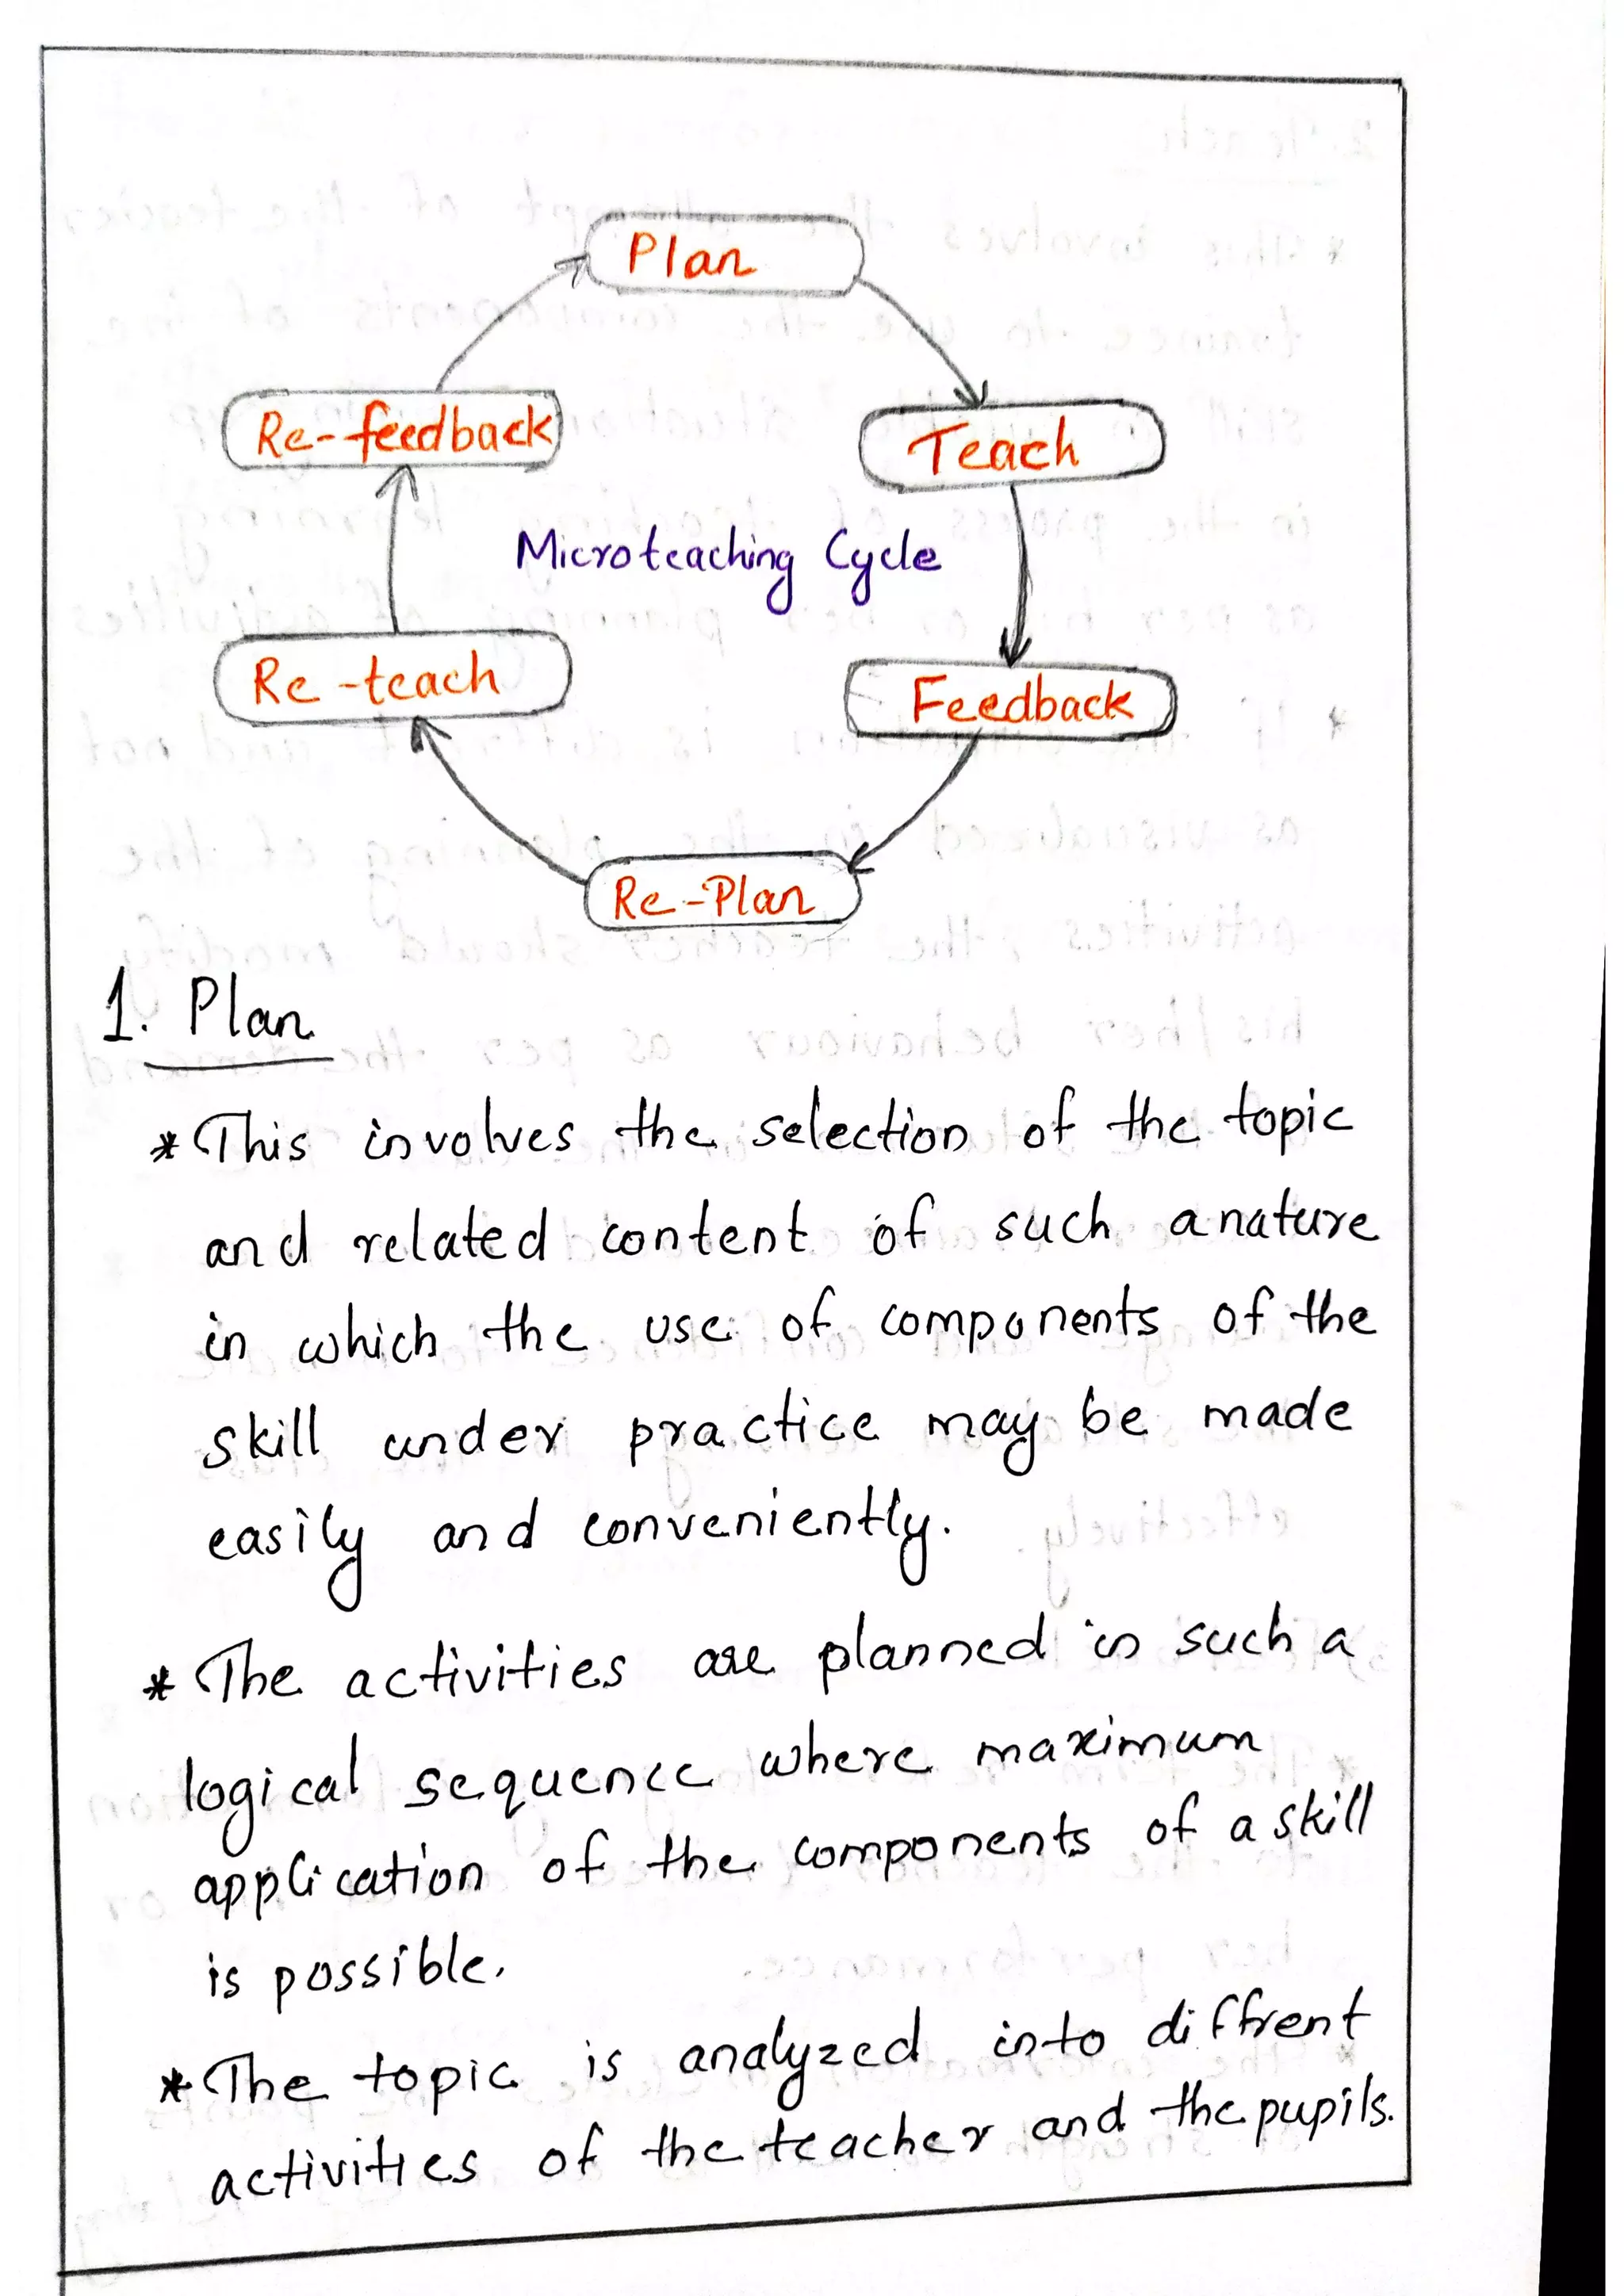 Plan
Re-feedback
Teach
Microteaching Cycle
Re-teach
Feedback
Re-Plan
1. Plan
* This involves the selection of the topic
and related content of such a nature
in which the use of components of the
skill under practice may be made
easily and conveniently.
* The activities are planned in such a
logical sequence where maximum
application of the components of a skill
is possible.
* The topic is analyzed into diffrent
activities of the teacher and the pupils.